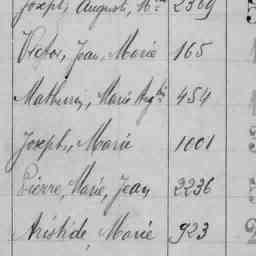 Joseph, Auguste, M^ie 2369
Jean, Marie 165
Mathurin, Marie Ang^le 454
Joseph, Marie 1001
Pierre, Marie, Jean 2236
Aristide, Marie 923